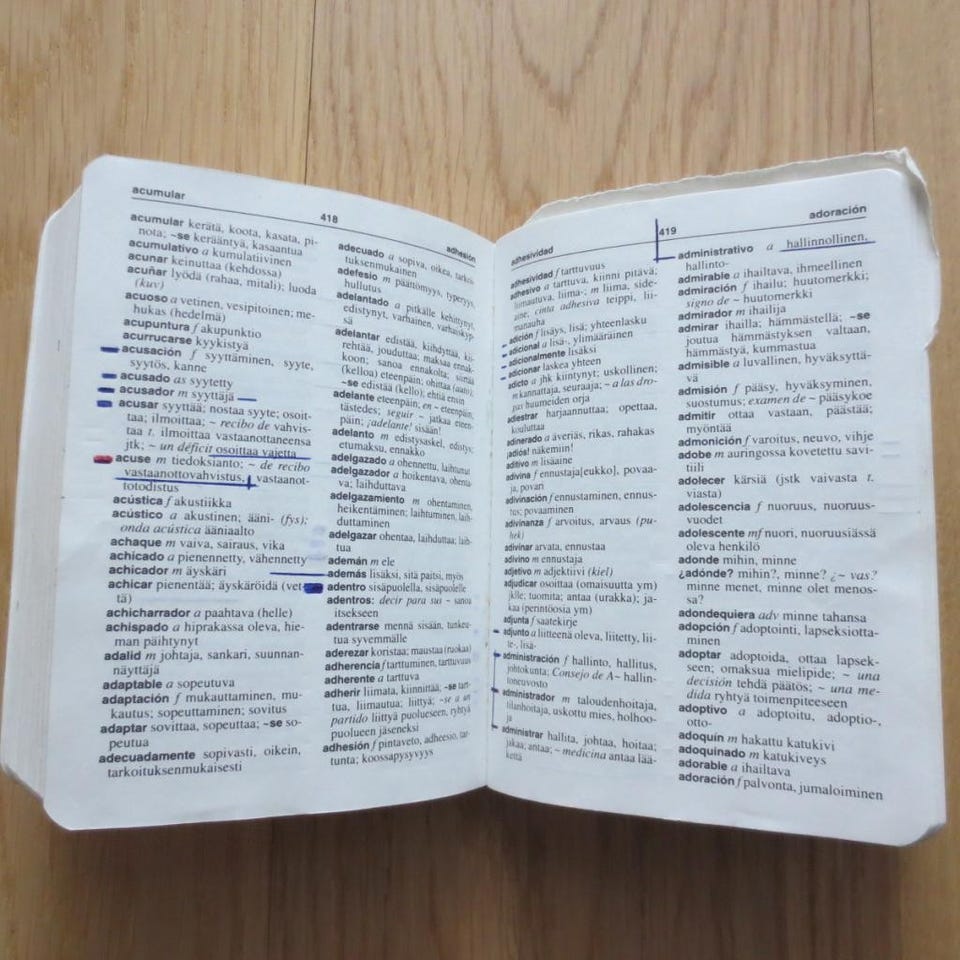 acumular
418
adhesión
acumular kerätä, koota, kasata, pi-
nota; ~se kerääntyä, kasaantua
acumulativo a kumulatiivinen
acunar keinuttaa (kehdossa)
acuñar lyödä (rahaa, mitali); luoda
(kuv)
acuoso a vetinen, vesipitoinen; me-
hukas (hedelmä)
acupuntura f akupunktio
acurrucarse kyykistyä
acusación f syyttäminen, syyte,
syytös, kanne
acusado as syytetty
acusador m syyttäjä
acusar syyttää; nostaa syyte; osoit-
taa; ilmoittaa; ~ recibo de vahvis-
taa t. ilmoittaa vastaanottaneensa
jtk; ~ un déficit osoittaa vajetta
acuse m tiedoksianto; ~ de recibo
vastaanottovahvistus, vastaanot-
totodistus
acústica f akustiikka
acústico a akustinen; ääni- (fys);
onda acústica ääniaalto
achaque m vaiva, sairaus, vika
achicado a pienennetty, vähennetty
achicador m äyskäri
achicar pienentää; äyskäröidä (vet-
tä)
achicharrador a paahtava (helle)
achispado a hiprakassa oleva, hie-
man päihtynyt
adalid m johtaja, sankari, suunnan-
näyttäjä
adaptable a sopeutuva
adaptación f mukauttaminen, mu-
kautus; sopeuttaminen; sovitus
adaptar sovittaa, sopeuttaa; ~se so-
peutua
adecuadamente sopivasti, oikein,
tarkoituksenmukaisesti
adecuado a sopiva, oikea, tarkoi-
tuksenmukainen
adefesio m päättömyys, typeryys,
hullutus
adelantado a pitkälle kehittynyt,
edistynyt, varhainen, varhaiskyp-
sä
adelantar edistää, kiihdyttää, kii-
rehtää, jouduttaa; maksaa ennak-
koon; sanoa ennakolta; siirtää
(kelloa) eteenpäin; ohittaa (auto);
~se edistää (kello); ehtiä ensin
adelante eteenpäin; en ~ eteenpäin,
tästedes; seguir ~ jatkaa eteen-
päin; ¡adelante! sisään!
adelanto m edistysaskel, edistys;
etumaksu, ennakko
adelgazado a ohennettu, laihtunut
adelgazador a hoikentava, ohenta-
va; laihduttava
adelgazamiento m ohentaminen,
heikentäminen; laihtuminen, laih-
duttaminen
adelgazar ohentaa, laihduttaa; laih-
tua
ademán m ele
además lisäksi, sitä paitsi, myös
adentro sisäpuolella, sisäpuolelle
adentros: decir para sus ~ sanoa
itsekseen
adentrarse mennä sisään, tunkeu-
tua syvemmälle
aderezar koristaa; maustaa (ruokaa)
adherencia f tarttuminen, tarttuvuus
adherente a tarttuva
adherir liimata, kiinnittää; ~se tart-
tua, liimautua; liittyä; ~se a un
partido liittyä puolueeseen, ryhtyä
puolueen jäseneksi
adhesión f pintaveto, adheesio, tar-
tunta; koossapysyvyys
adhesividad
419
adoración
adhesividad f tarttuvuus
adhesivo a tarttuva, kiinni pitävä;
liimautuva, liima-; m liima, side-
aine, cinta adhesiva teippi, lii-
manauha
adición f lisäys, lisä; yhteenlasku
adicional a lisä-, ylimääräinen
adicionalmente lisäksi
adicionar laskea yhteen
adicto a jhk kiintynyt; uskollinen;
m kannattaja, seuraaja; ~ a las dro-
gas huumeiden orja
adiestrar harjaannuttaa; opettaa,
kouluttaa
adinerado a äveriäs, rikas, rahakas
¡adiós! näkemiin!
aditivo m lisäaine
adivina f ennustaja[eukko], povaa-
ja, povari
adivinación f ennustaminen, ennus-
tus; povaaminen
adivinanza f arvoitus, arvaus (pu-
hek)
adivinar arvata, ennustaa
adivino m ennustaja
adjetivo m adjektiivi (kiel)
adjudicar osoittaa (omaisuutta ym)
jklle; tuomita; antaa (urakka); ja-
kaa (perintöosia ym)
adjunta f saatekirje
adjunto a liitteenä oleva, liitetty, lii-
te-, lisä-
administración f hallinto, hallitus,
johtokunta; Consejo de A~ hallin-
toneuvosto
administrador m taloudenhoitaja,
tilanhoitaja, uskottu mies, holhoo-
ja
administrar hallita, johtaa, hoitaa;
jakaa; antaa; ~ medicina antaa lää-
kettä
administrativo a hallinnollinen,
hallinto-
admirable a ihailtava, ihmeellinen
admiración f ihailu; huutomerkki;
signo de ~ huutomerkki
admirador m ihailija
admirar ihailla; hämmästellä; ~se
joutua hämmästyksen valtaan,
hämmästyä, kummastua
admisible a luvallinen, hyväksyttä-
vä
admisión f pääsy, hyväksyminen,
suostumus; examen de ~ pääsykoe
admitir ottaa vastaan, päästää;
myöntää
admonición f varoitus, neuvo, vihje
adobe m auringossa kovetettu savi-
tiili
adolecer kärsiä (jstk vaivasta t.
viasta)
adolescencia f nuoruus, nuoruus-
vuodet
adolescente mf nuori, nuoruusiässä
oleva henkilö
adonde mihin, minne
¿adónde? mihin?, minne? ¿~ vas?
minne menet, minne olet menos-
sa?
adondequiera adv minne tahansa
adopción f adoptointi, lapseksiotta-
minen
adoptar adoptoida, ottaa lapsek-
seen; omaksua mielipide; ~ una
decisión tehdä päätös; ~ una me-
dida ryhtyä toimenpiteeseen
adoptivo a adoptoitu, adoptio-,
otto-
adoquín m hakattu katukivi
adoquinado m katukiveys
adorable a ihailtava
adoración f palvonta, jumaloiminen